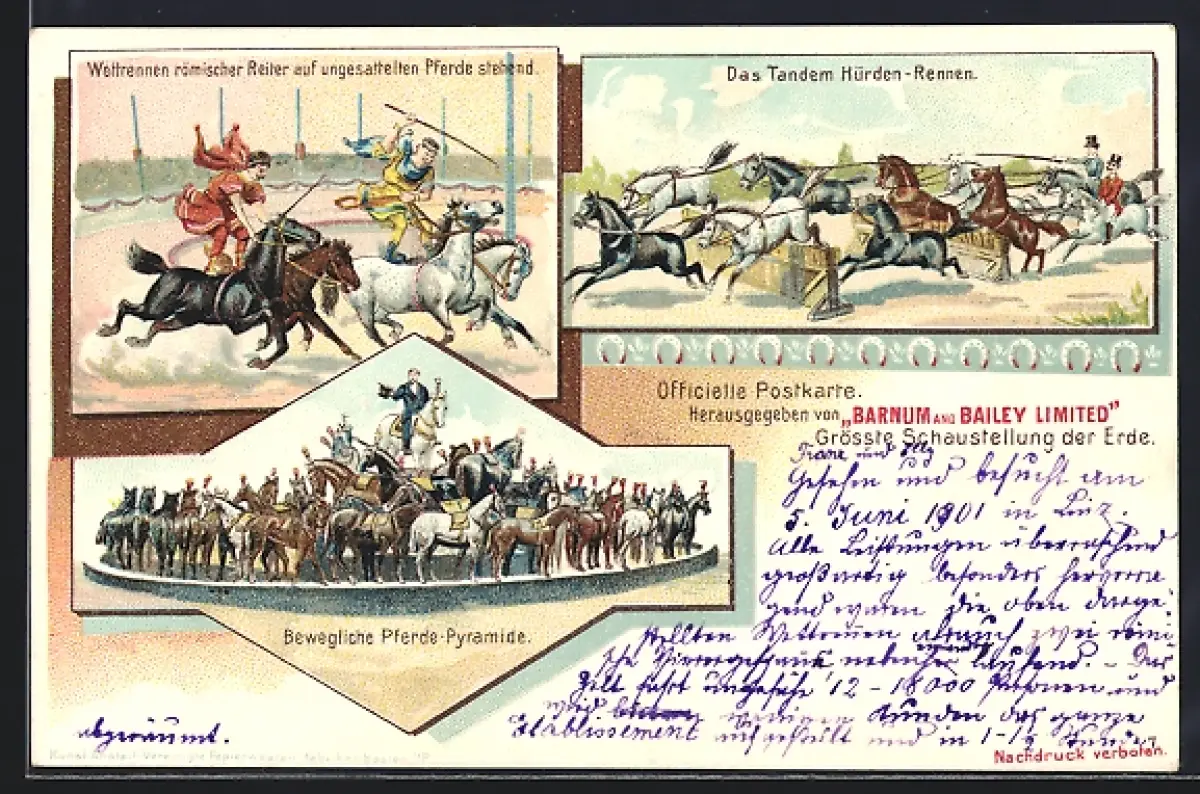 Wettrennen römischer Reiter auf ungesattelten Pferde stehend.
Das Tandem Hürden-Rennen.
Officielle Postkarte.
Herausgegeben von „BARNUM AND BAILEY LIMITED"
Grösste Schaustellung der Erde.
Bewegliche Pferde-Pyramide.
Franz und
Gesehen und besucht am
5. Juni 1901 in Linz.
Alle Leistungen überraschend
großartig besonders hervorra
gend waren die oben darge-
stellten Wettrennen auch zwei römi-
sche nebeneinander laufend. - Das
Zelt faßt ungefähr 12 - 18000 Personen und
wird wenigen Stunden das ganze
Etablissement aufgestellt und in 1-1½ Stunden
abgeräumt.
Nachdruck verboten.